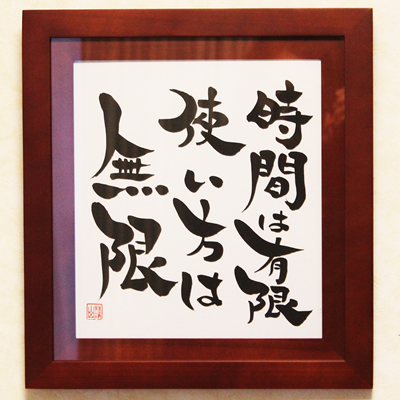 時間は有限
使い方は
無限